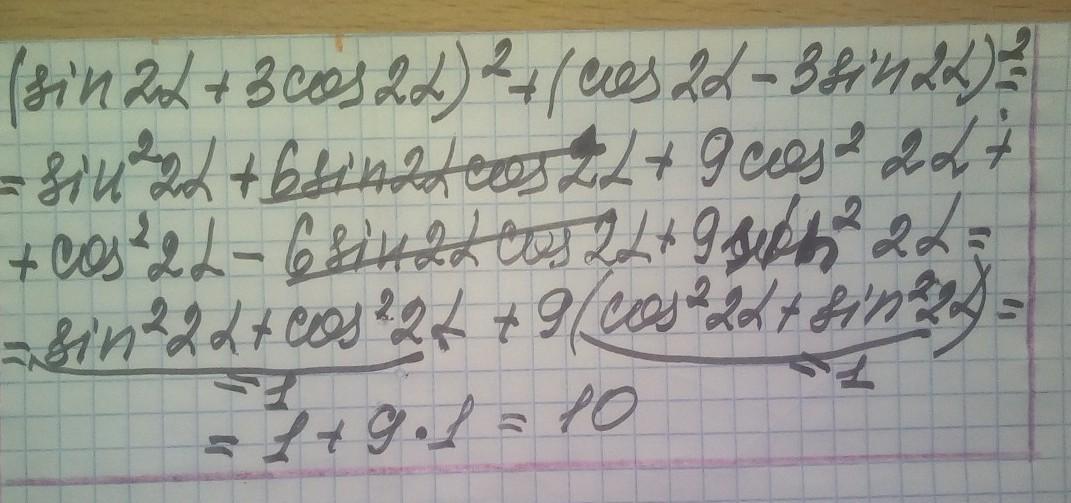 (sin 2α + 3cos 2α)² + (cos 2α - 3sin 2α)² =
= sin² 2α + 6sin2α cos 2α + 9cos² 2α +
+ cos² 2α - 6sin2α cos 2α + 9sin² 2α =
= sin² 2α + cos² 2α + 9(cos² 2α + sin² 2α) =
= 1 = 1
= 1 + 9·1 = 10